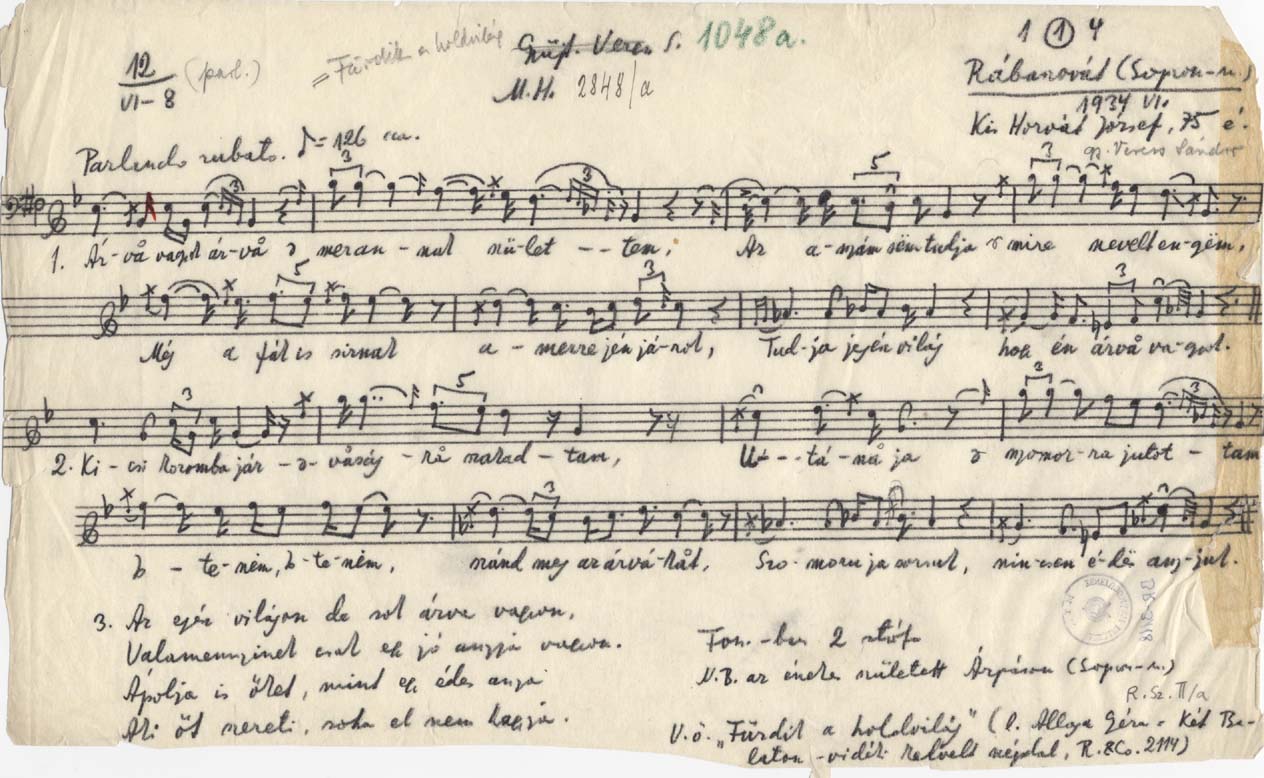 12
VI-8
(parl.)
= Fürdik a holdvilág
Gyűjt. Veress S. 1048a.
M.H. 2848/a
1 ① 4
Rábanovát (Sopron-m.)
1934 VI.
Kis Horvát József, 75 é.
gy. Veress Sándor
Parlando rubato. ♪=126 ca.
3 3 5 3
1. Ár-vå vagyok ár-vå
nü-let--tem, Az a-nyám sëm tudja mire nevelt en-gëm,
5 3 3
Még a fák is sirnak a-merre jén já-rok, Tud-ja jegén világ hogy én árvå va-gyok.
3 5 3 3
2. Ki-csi koromba jár-
marad-tam, U--tá-nå ja nyomor-ra jutot-tam
3
te-nëm, te-nëm, szánd meg az árvá-kåt, Szo-moru ja sorsuk, nin-csen é-dës any-juk.
3. Az egéz világon de sok árva vagyon,
Valamennyinek csak egy jó anyja vagyon.
Ápolja is őket, mint egy édes anya
Aki őt szereti, soha el nem hagyja.
Fon.-ban 2 stófa
N.B. az énekes született Árpáson (Sopron-m.)
R. Sz. II/a
V.ö. „Fürdik a holdvilág" (l. Allaga Géza - Két Ba-
laton-vidéki kedvelt népdal, R.&Co. 2114)